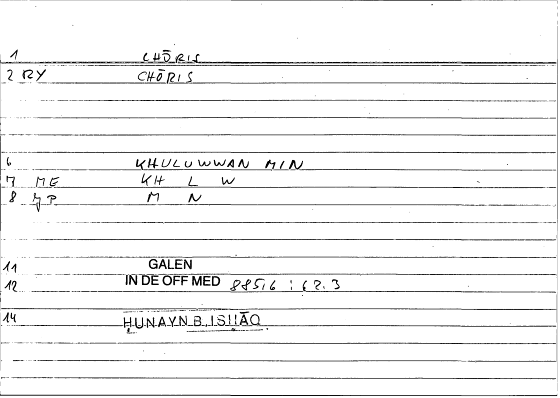 1 CHŌRIS
2 RY CHŌRIS
6 KHULUWWAN MIN
7 ME KH L W
8 M N
11 GALEN
12 IN DE OFF MED 885,6 : 62.3
14 ḤUNAYN B. ISḤĀQ